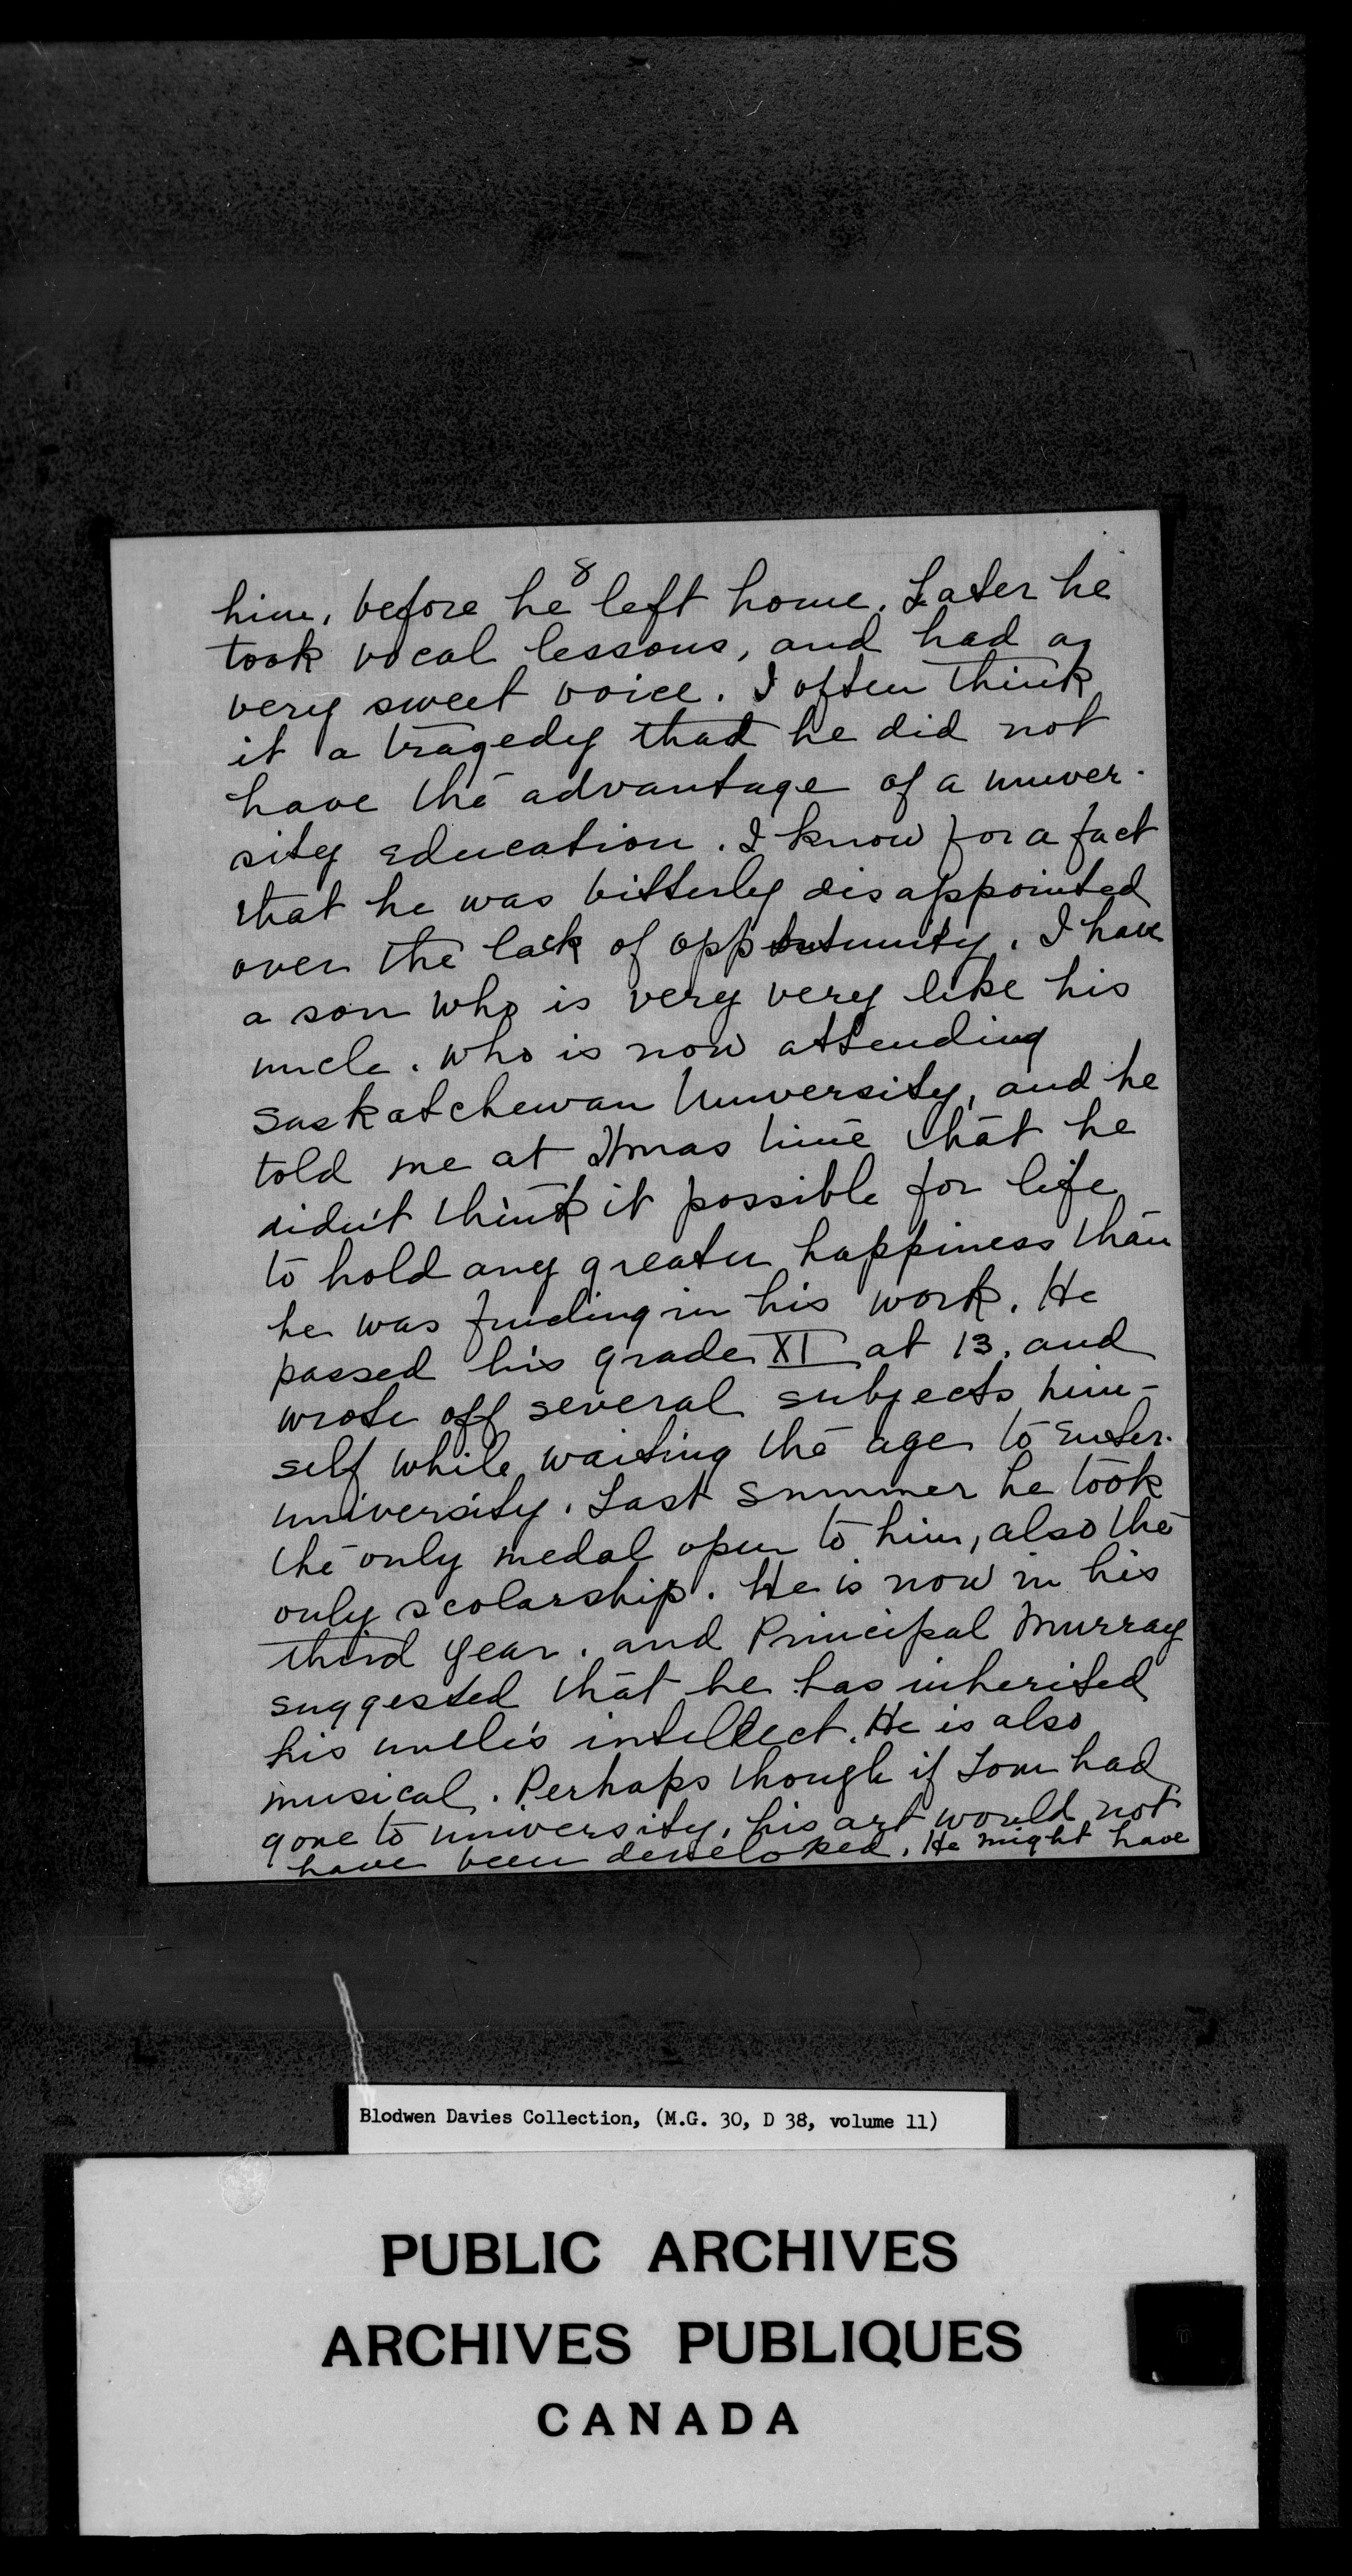 8
him, before he left home. Later he
took vocal lessons, and had a
very sweet voice. I often think
it a tragedy that he did not
have the advantage of a univer-
sity education. I know for a fact
that he was bitterly disappointed
over the lack of opportunity. I have
a son who is very very like his
uncle. who is now attending
Saskatchewan University, and he
told me at Xmas time that he
didn't think it possible for life
to hold any greater happiness than
he was finding in his work. He
passed his grade XI at 13. and
wrote off several subjects him-
self while waiting the age to enter
university. Last summer he took
the only medal open to him, also the
only scolarship. He is now in his
third year. and Principal Murray
suggested that he has inherited
his uncle's intellect. He is also
musical. Perhaps though if Tom had
gone to university, his art would not
have been developed. He might have
Blodwen Davies Collection, (M.G. 30, D 38, volume 11)
PUBLIC ARCHIVES
ARCHIVES PUBLIQUES
CANADA